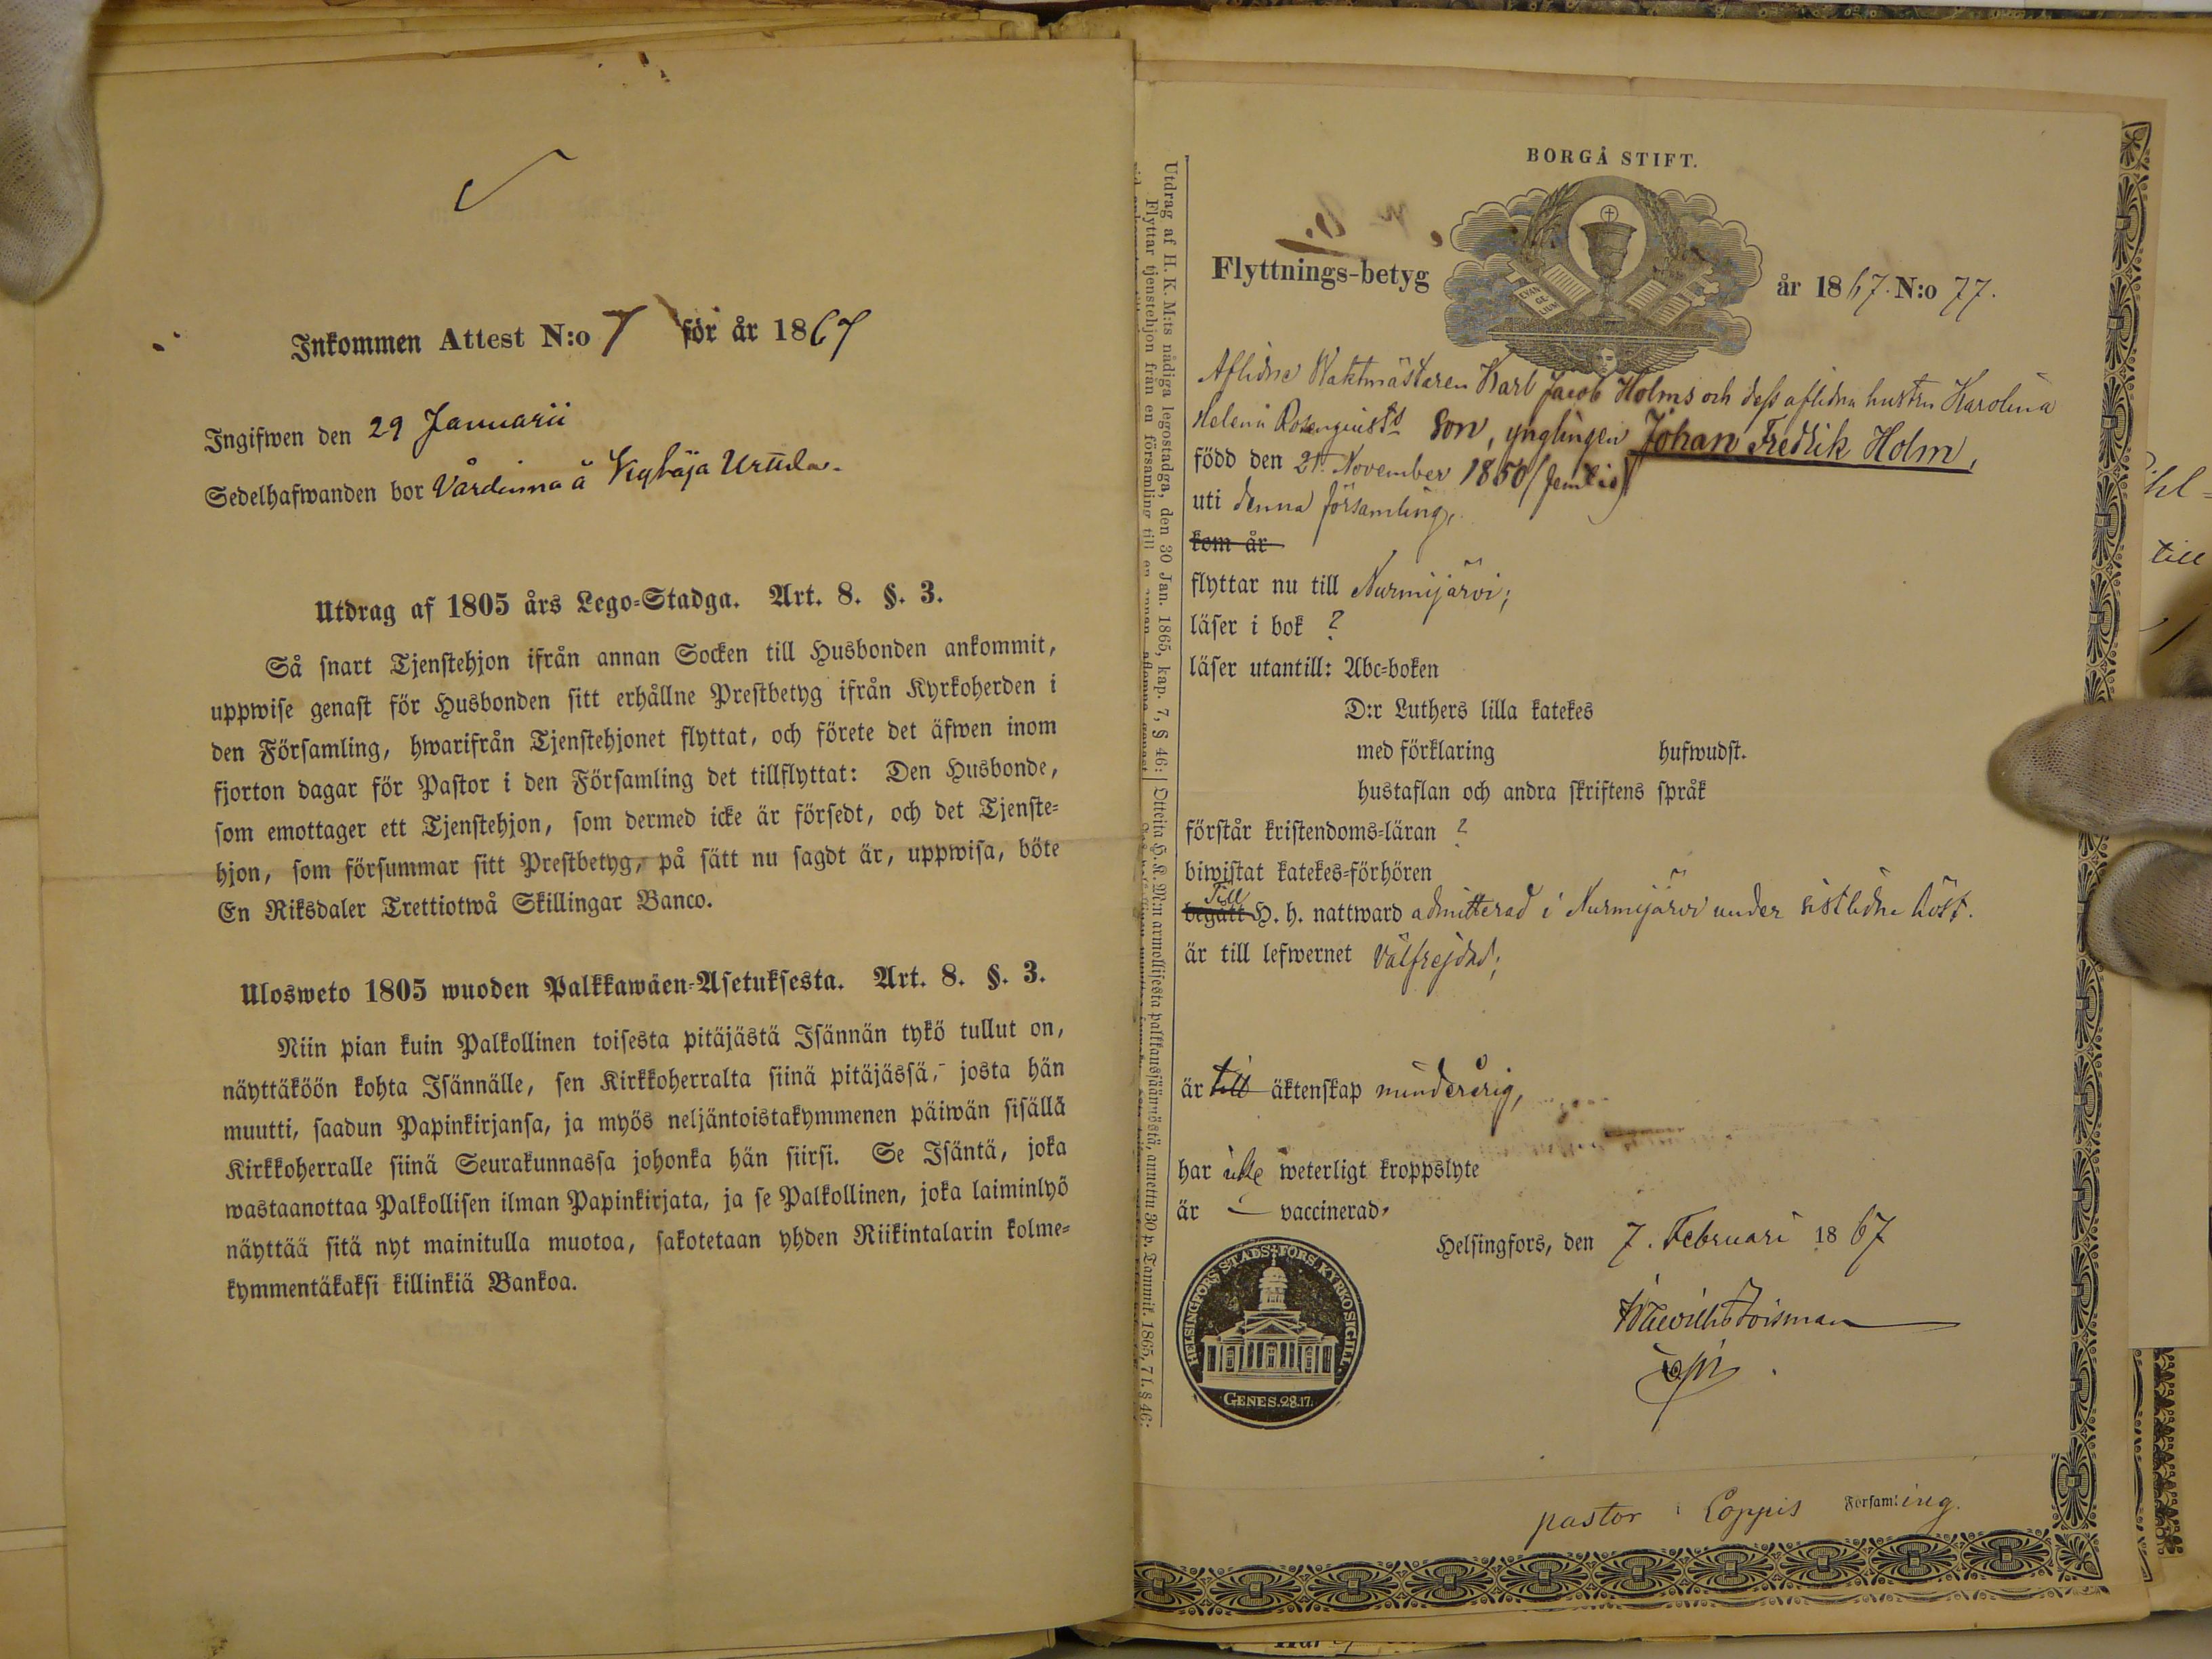 Inkommen Attest N:o 7 för år 1867
Ingifwen den 29 Januarii
Sedelhafwanden bor Vårdinna å
Utdrag af 1805 års Lego-Stadga. Art. 8. §. 3.
Så snart Tjenstehjon ifrån annan Socken till Husbonden ankommit,
uppwise genast för Husbonden sitt erhållne Prestbetyg ifrån Kyrkoherden i
den Församling, hwarifrån Tjenstehjonet flyttat, och förete det äfwen inom
fjorton dagar för Pastor i den Församling det tillflyttat: Den Husbonde,
som emottager ett Tjenstehjon, som dermed icke är försedt, och det Tjenste-
hjon, som försummar sitt Prestbetyg, på sätt nu sagdt är, uppwisa, böte
En Riksdaler Trettiotwå Skillingar Banco.
Ulosweto 1805 wuoden Palkkawäen-Asetuksesta. Art. 8. §. 3.
Niin pian kuin Palkollinen toisesta pitäjästä Isännän tykö tullut on,
näyttäköön kohta Isännälle, sen Kirkkoherralta siinä pitäjässä, josta hän
muutti, saadun Papinkirjansa, ja myös neljäntoistakymmenen päiwän sisällä
Kirkkoherralle siinä Seurakunnassa johonka hän siirsi. Se Isäntä, joka
wastaanottaa Palkollisen ilman Papinkirjata, ja se Palkollinen, joka laiminlyö
näyttää sitä nyt mainitulla muotoa, sakotetaan yhden Riikintalarin kolme-
kymmentäkaksi killinkiä Bankoa.
Utdrag af H. K. M:ts nådiga legostadga, den 30 Jan. 1865, kap. 7, § 46:
Flyttar tjenstehjon från en församling till en annan
Otteita H. K. M:n armollisesta palkkaussäännöstä, annettu 30 p. Tammik. 1865, 7 l. § 46:
BORGÅ STIFT.
EVAN GE- LIUM
Flyttnings-betyg år 1867. N:o 77.
Aflidne Waktmästaren Karl Jacob Holms och dess aflidna hustru Karolina
Helena Rosenquists son, ynglingen Johan Fredrik Holm,
född den 21 November 1850 (femtio)
uti denna församling,
kom år
flyttar nu till Nurmijärvi;
läser i bok ?
läser utantill: Abc-boken
D:r Luthers lilla katekes
med förklaring hufwudst.
hustaflan och andra skriftens språk
förstår kristendoms-läran ?
biwistat katekes-förhören
Till
begått H. h. nattward admitterad i Nurmijärvi under sistlidne höst.
är till lefwernet välfrejdad;
är till äktenskap minderårig,
har icke weterligt kroppslyte
är vaccinerad,
Helsingfors, den 7. Februari 1867
HELSINGFORS STADS FÖRS. KYRKO SIGILL.
GENES. 28.17.
pastor i Loppis Församling.
till